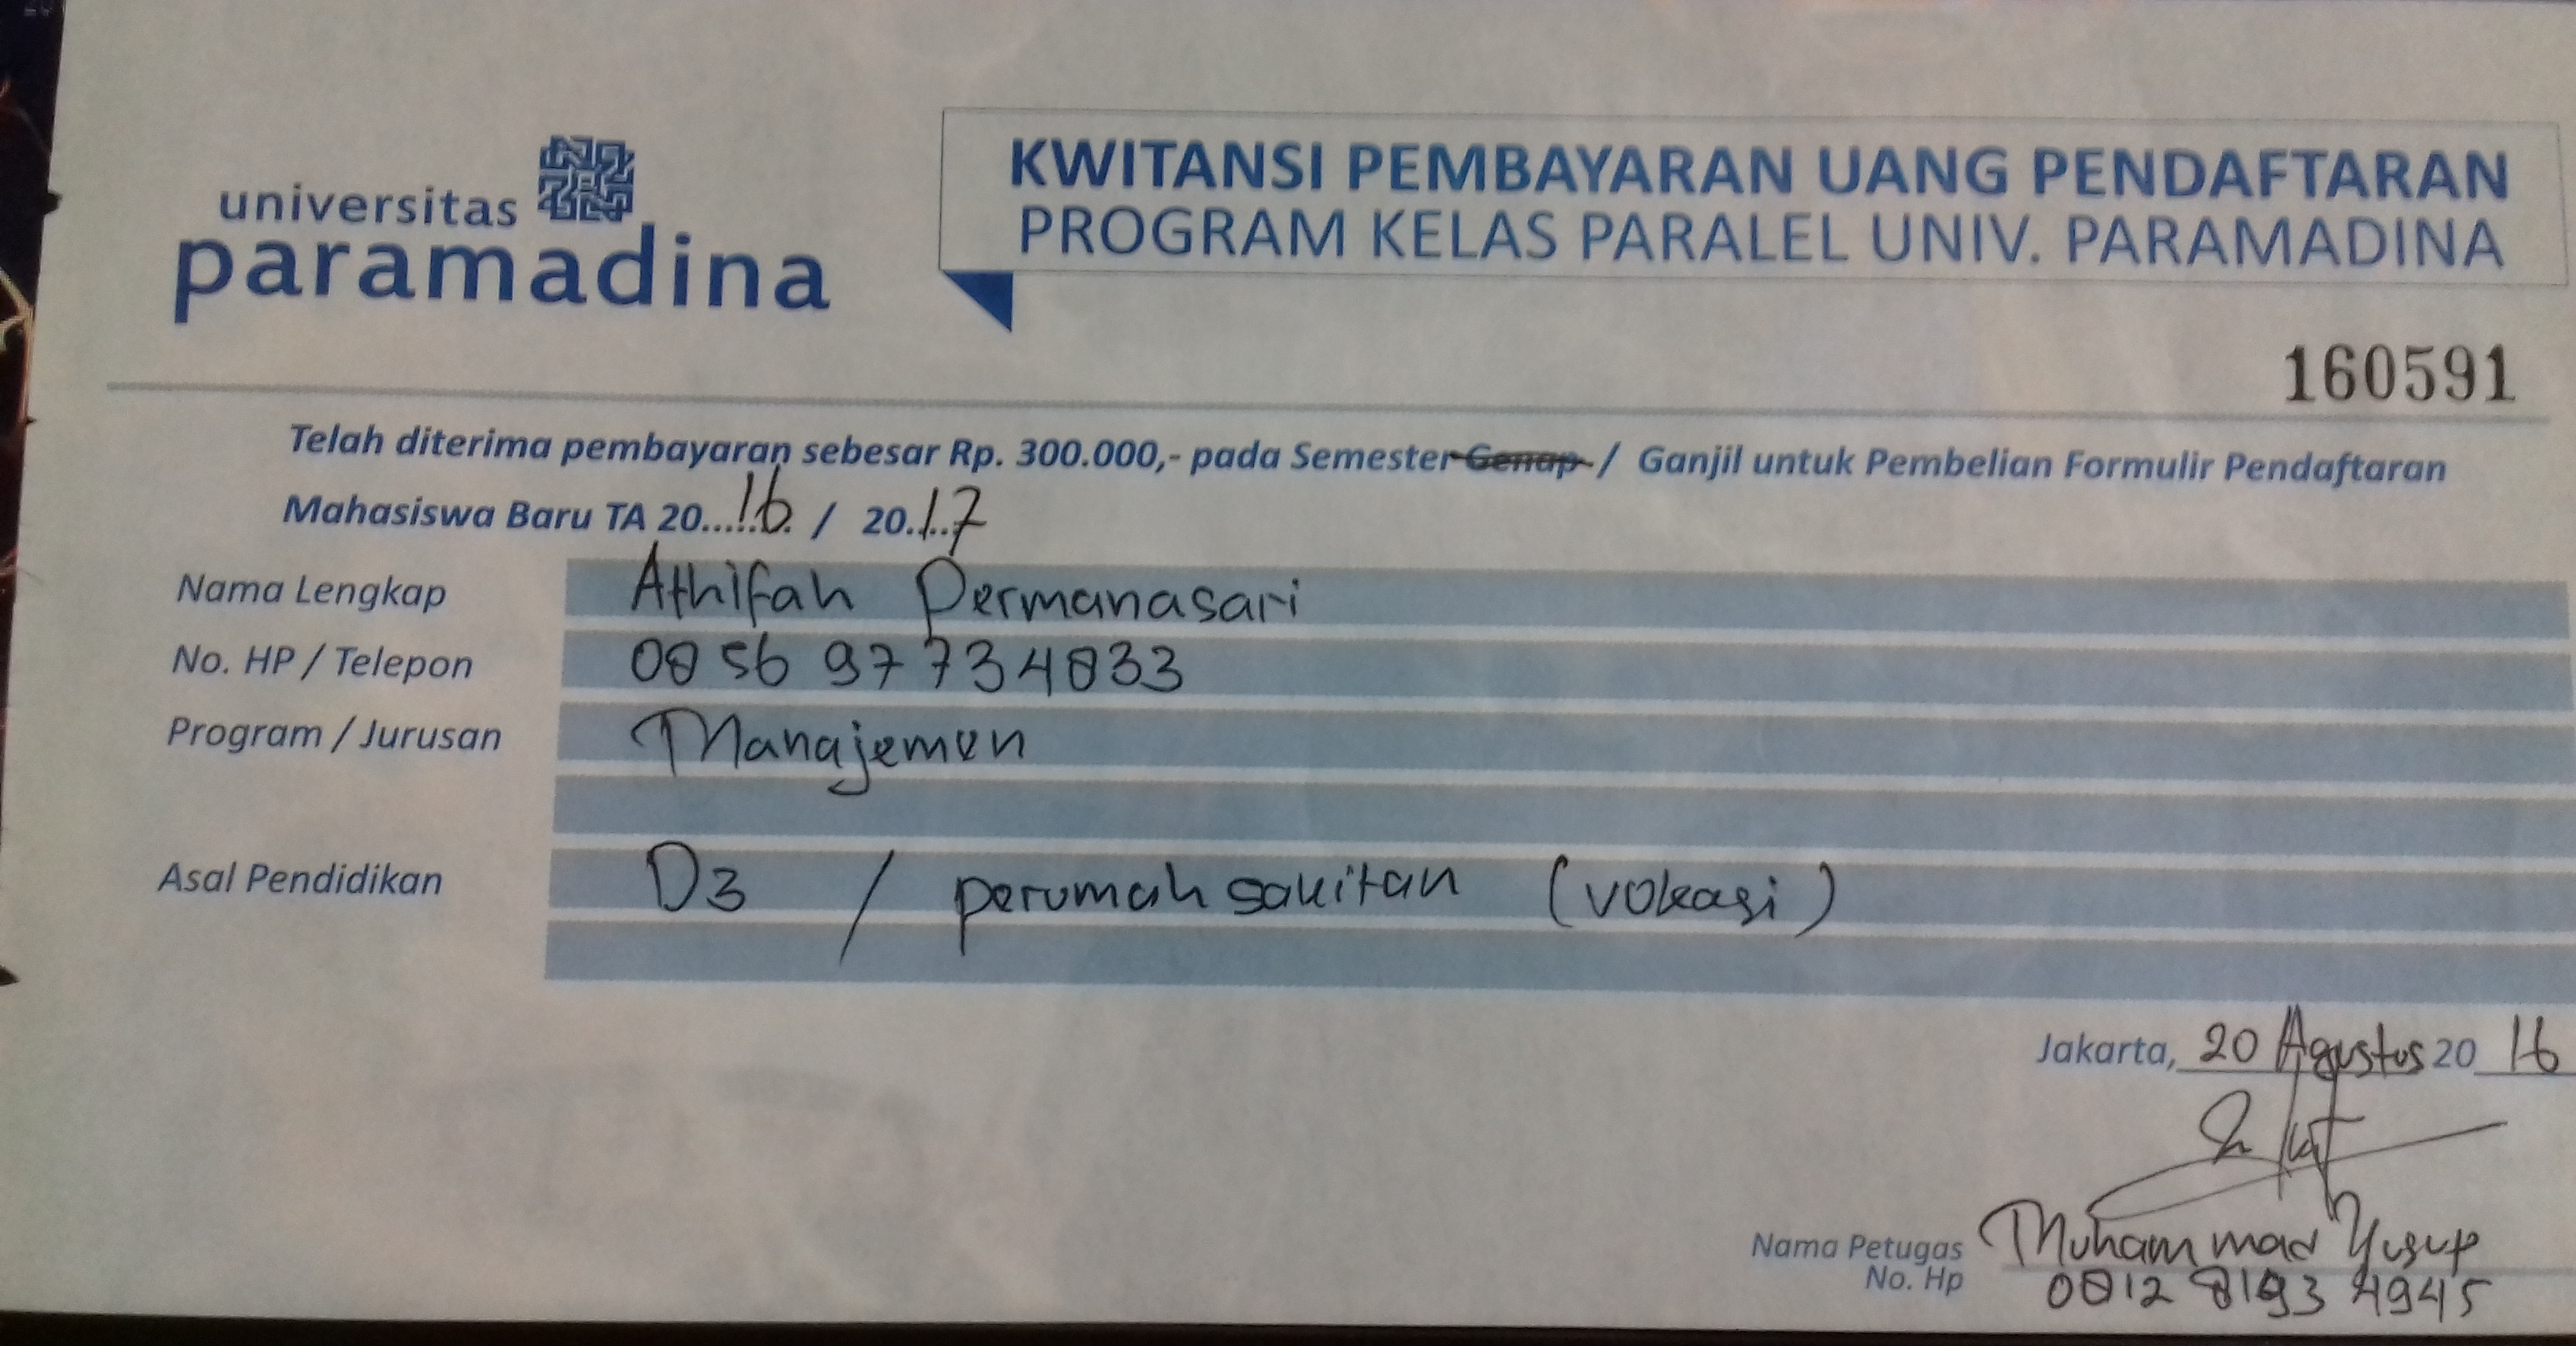 universitas
paramadina
KWITANSI PEMBAYARAN UANG PENDAFTARAN
PROGRAM KELAS PARALEL UNIV. PARAMADINA
160591
Telah diterima pembayaran sebesar Rp. 300.000,- pada Semester Genap / Ganjil untuk Pembelian Formulir Pendaftaran
Mahasiswa Baru TA 20...16. / 20.17
Nama Lengkap Athifah Permanasari
No. HP / Telepon 0856 97734833
Program / Jurusan Manajemen
Asal Pendidikan D3 / perumahsakitan (vokasi)
Jakarta, 20 Agustus 20 16
Nama Petugas Muhammad Yusup
No. Hp 0812 8193 4945